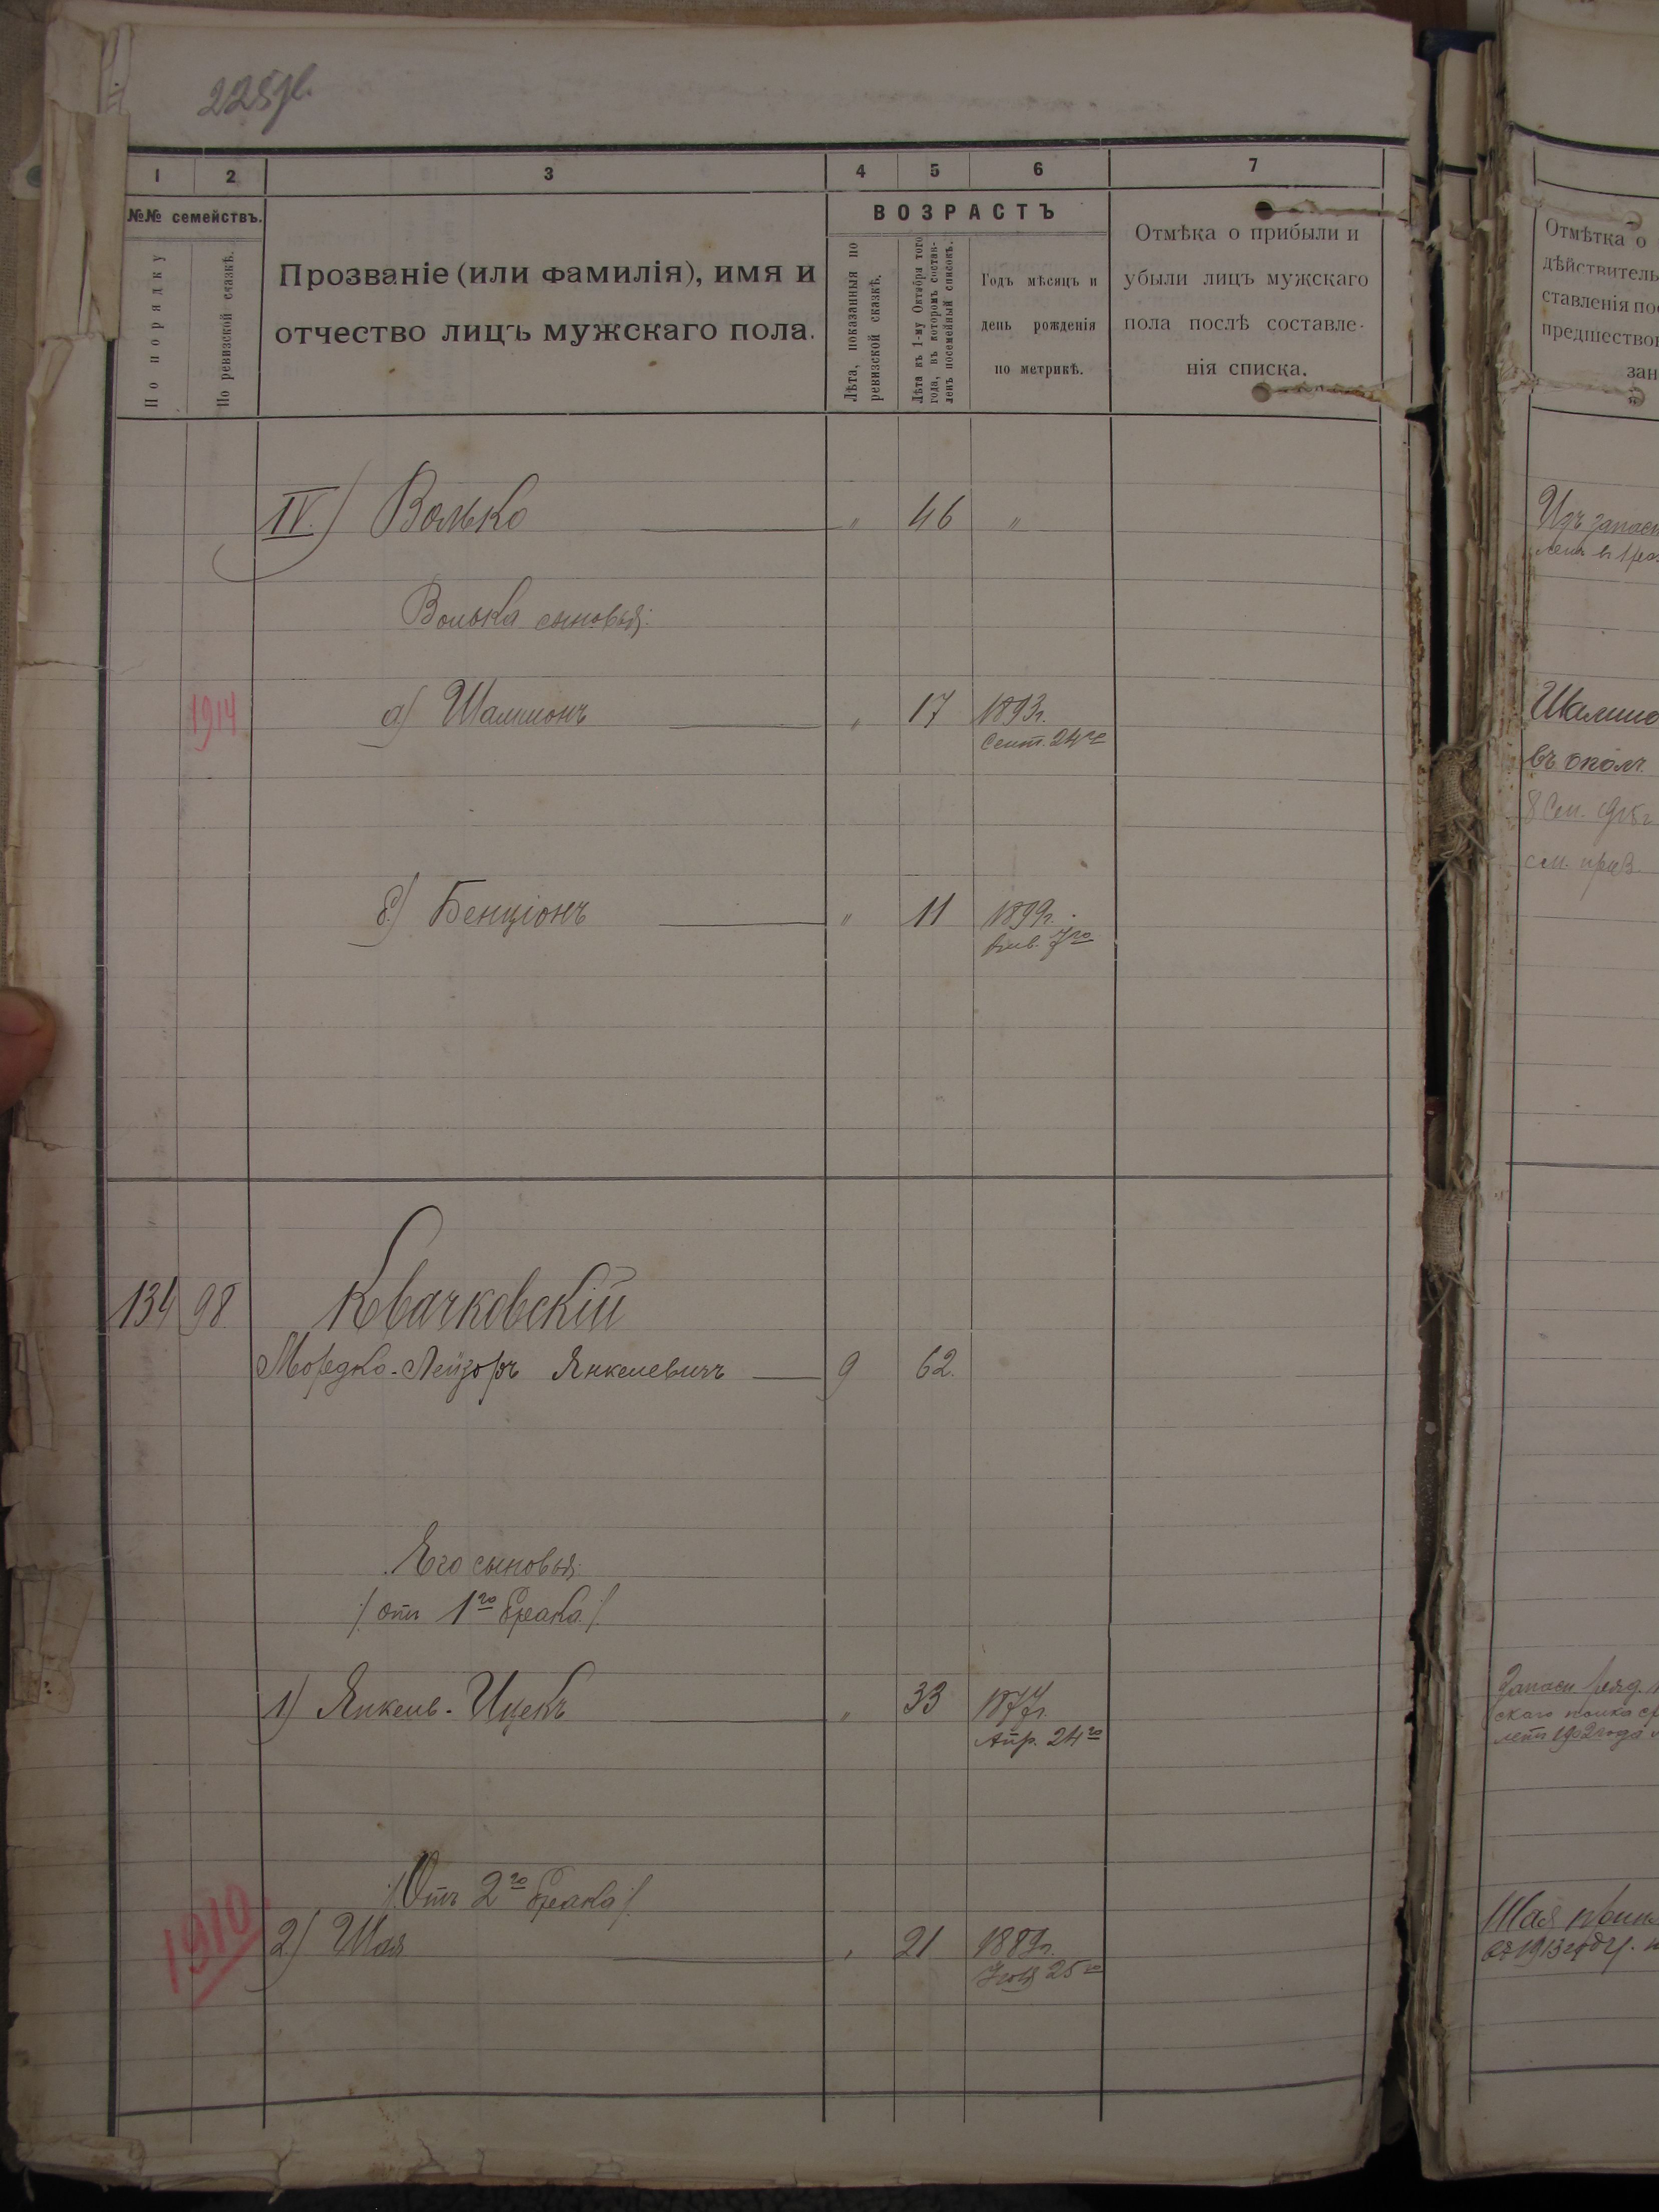 225 об.
1 2 3 4 5 6 7
№№ семействъ.
По порядку
По ревизской сказкѣ.
Прозваніе (или фамилія), имя и
отчество лицъ мужскаго пола.
ВОЗРАСТЪ
Лѣта, показанныя по
ревизской сказкѣ.
Лѣта къ 1-му Октября того
года, въ которомъ состав-
ленъ посемейный списокъ.
Годъ мѣсяцъ и
день рожденія
по метрикѣ.
Отмѣка о прибыли и
убыли лицъ мужскаго
пола послѣ составле-
нія списка.
IV.) Волько " 46 "
Волька сыновья:
1914 а) Шлиомъ " 17 1893г.
Сент. 24го
б) Бенціонъ " 11 1899г.
Янв. 7го
134 98. Квачковскій
Мордко-Лейзоръ Янкелевичъ 9 62.
Его сыновья:
/отъ 1го брака/
1) Янкель-Ицекъ " 33 1877г.
Апр. 24го
/Отъ 2го брака/
1910. 2) Шая " 21 1889г.
Іюля 25го
Отмѣтка о
дѣйствитель
ставленія пос
предшествов
зан
Изъ запасн
въ околч.
8 Сен. 1915г
см. приз.
Запасн. ряд.
скаго полка
1902 года
Шая прин
въ 1913 году.